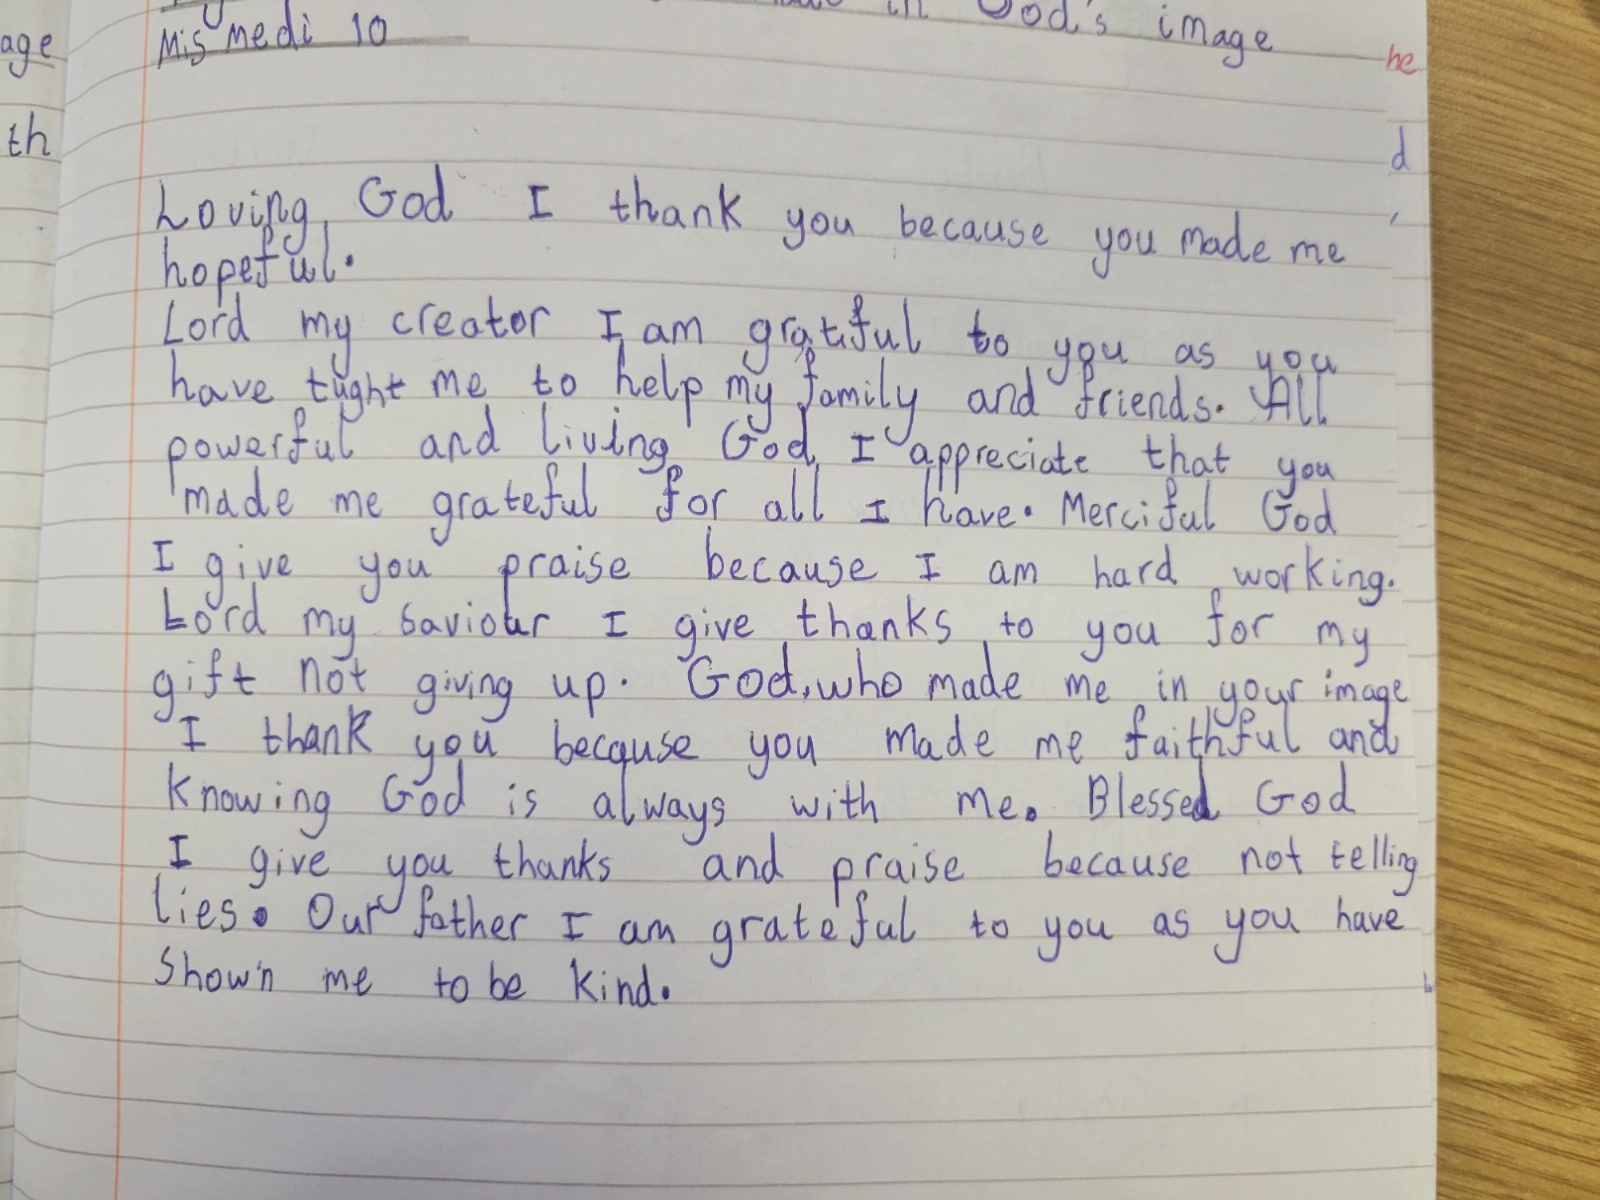 in God's image
age
Mis medi 10
he
th
d
Loving God I thank you because you made me
hopeful.
Lord my creator I am gratful to you as you
have tught me to help my family and friends. All
powerful and living God I appreciate that you
made me grateful for all I have. Merciful God
I give you praise because I am hard working.
Lord my saviour I give thanks to you for my
gift not giving up. God, who made me in your image
I thank you because you made me faithful and
knowing God is always with me. Blessed God
I give you thanks and praise because not telling
lies. Our father I am grateful to you as you have
shown me to be kind.